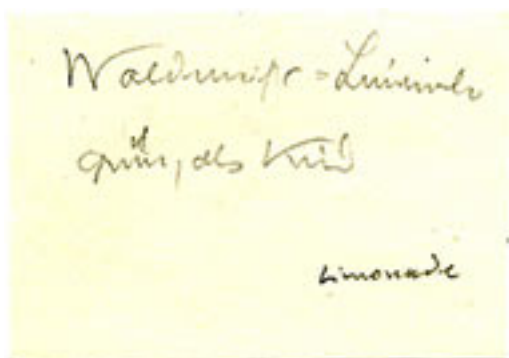 Waldmeister-Limonade
grün, als Kind
Limonade